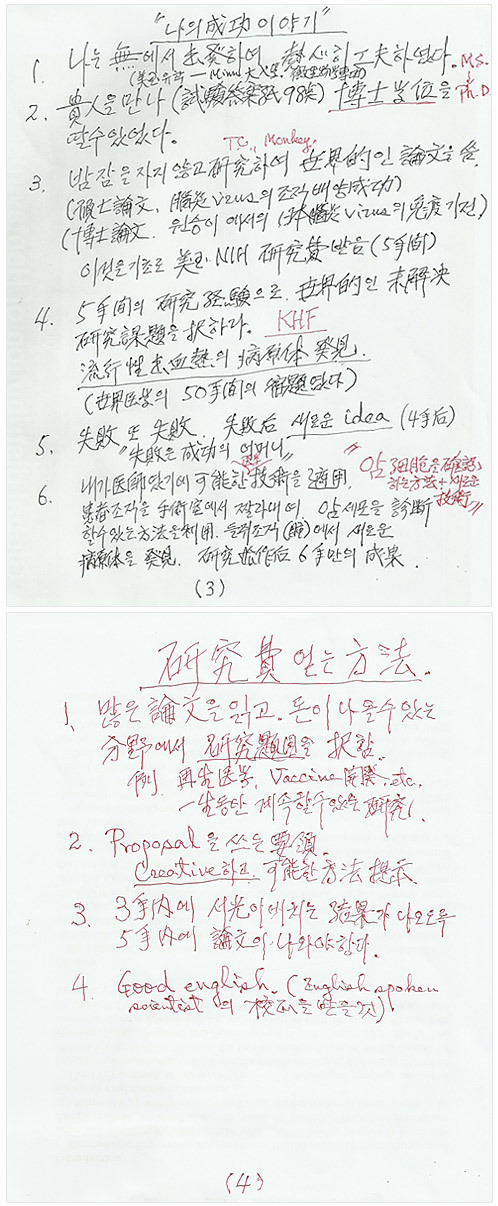 "나의 成功 이야기"
1. 나는 無에서 出發하여, 熱心히 工夫하였다. M.S.
(美国 유학 — Minn 大学, 微生物学専攻)
2. 貴人을 만나 (試驗答案紙 98点) 博士学位을 Ph.D
딸 수 있었다.
TC, Monkey.
3. 밤잠을 자지 않고 研究하여 世界的인 論文을 씀.
(碩士論文, 腦炎 virus의 조직배양 成功)
(博士論文. 원숭이에서의 日本腦炎 virus의 免疫기전)
이것을 기초로 美国 NIH 研究費 받음 (5年間)
4. 5年間의 研究経験으로, 世界的인 未解決
研究課題을 択하다. KHF
流行性出血熱의 病原体 発見.
(世界医学의 50年間의 宿題였다)
5. 失敗 또 失敗. 失敗后 새로운 idea (4年后)
"失敗은 成功의 어머니"
6. 내가 医師였기에 可能한 技術을 適用.
"암細胞을 確認
하는 方法 + 새로운
技術"
患者조직을 手術室에서 잘라내여, 암세포을 診断
할수있는 方法을 利用. 들쥐조직(肺)에서 새로운
病原体을 発見. 研究始作后 6年만의 成果.
(3)
研究費 얻는 方法.
1. 많은 論文을 읽고. 돈이 나올수 있는
分野에서 研究題目을 択함.
例. 再生医学, Vaccine 開発, etc.
一生동안 계속할수있는 研究.
2. Proposal을 쓰는 要領.
Creative하고, 可能한 方法 提示.
3. 3年内에 서光이 비치는 結果가 나오도록
5年内에 論文이 나와야 한다.
4. Good english. (English spoken
scientist의 校正을 받을것)
(4)